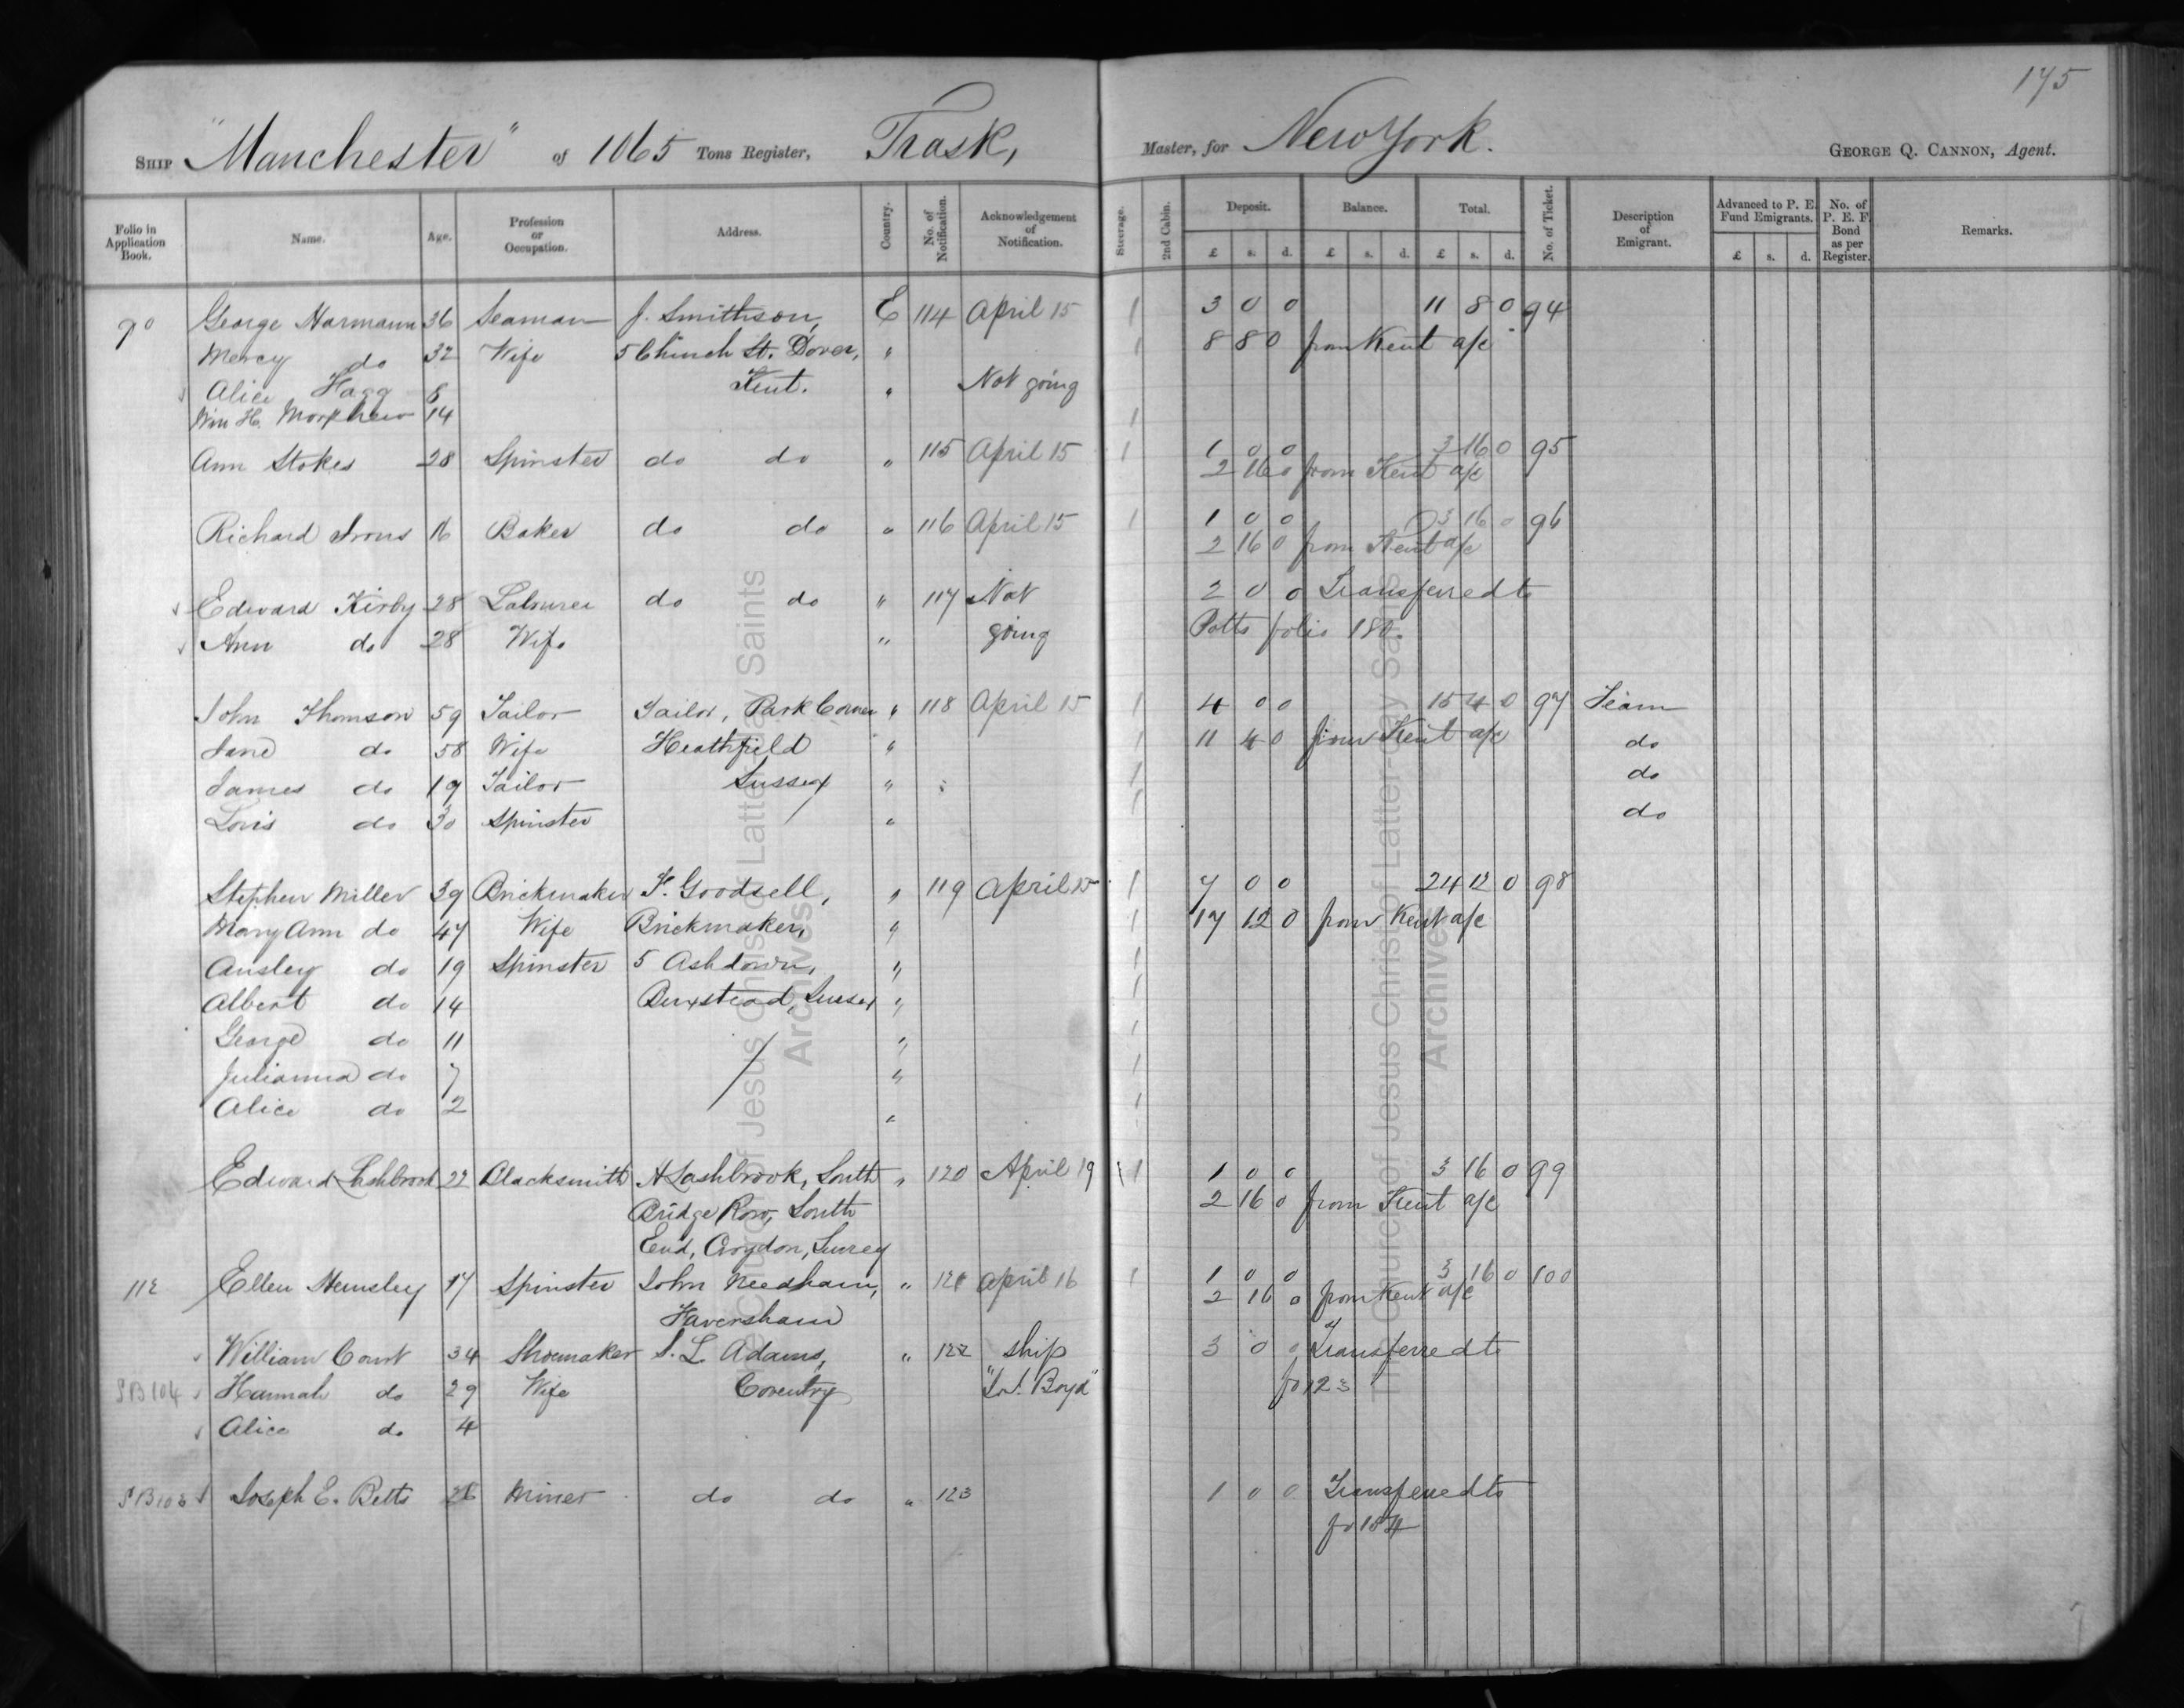 175
SHIP "Manchester" of 1065 Tons Register, Trask, Master, for New York. GEORGE Q. CANNON, Agent.
Folio in Application Book. Name. Age. Profession or Occupation. Address. Country. No. of Notification. Acknowledgement of Notification. Steerage. 2nd Cabin. Deposit. Balance. Total. No. of Ticket. Description of Emigrant. Advanced to P. E. Fund Emigrants. No. of P. E. F. Bond as per Register. Remarks.
£ s. d. £ s. d. £ s. d. £ s. d.
90 George Harmann 36 Seaman J. Smithson, E 114 April 15 1 3 0 0 11 8 0 94
Mercy do 32 Wife 5 Church St. Dover, " 1 8 8 0 from Kent a/c
Alice Fagg 6 Kent. " Not going
Wm H. Morphew 14 1
Ann Stokes 28 Spinster do do " 115 April 15 1 1 0 0 3 16 0 95
2 16 0 from Kent a/c
Richard Irons 16 Baker do do " 116 April 15 1 1 0 0 3 16 0 96
2 16 0 from Kent a/c
Edward Kirby 28 Labourer do do " 117 Not 2 0 0 Transferred to
Ann do 28 Wife " going Potts folio 180.
John Thomson 59 Tailor Tailor, Park Corner " 118 April 15 1 4 0 0 15 4 0 97 Team
Jane do 58 Wife Heathfield " 1 11 4 0 from Kent a/c do
James do 19 Tailor Sussex " 1 do
Lois do 30 Spinster " 1 do
Stephen Miller 39 Brickmaker F. Goodsell, " 119 April 15 1 7 0 0 24 12 0 98
Mary Ann do 47 Wife Brickmaker, " 1 17 12 0 from Kent a/c
Ansley do 19 Spinster 5 Ashdown, " 1
Albert do 14 Buxstead, Sussex " 1
George do 11 " 1
Julianna do 7 " 1
Alice do 2 " 1
Edward Lashbrook 22 Blacksmith H Lashbrook, South " 120 April 19 1 1 0 0 3 16 0 99
Bridge Row, South 2 16 0 from Kent a/c
End, Croydon, Surrey
112 Ellen Hemsley 17 Spinster John Needham, " 121 April 16 1 1 0 0 3 16 0 100
Faversham 2 16 0 from Kent a/c
William Court 34 Shoemaker S. L. Adams, " 122 Ship 3 0 0 Transferred to
SB104 Hannah do 29 Wife Coventry " Boyd" fo 123
Alice do 4
SB103 Joseph E. Betts 26 Miner do do " 123 1 0 0 Transferred to
fo 184
The Church of Jesus Christ of Latter-day Saints
Archives
The Church of Jesus Christ of Latter-day Saints
Archives